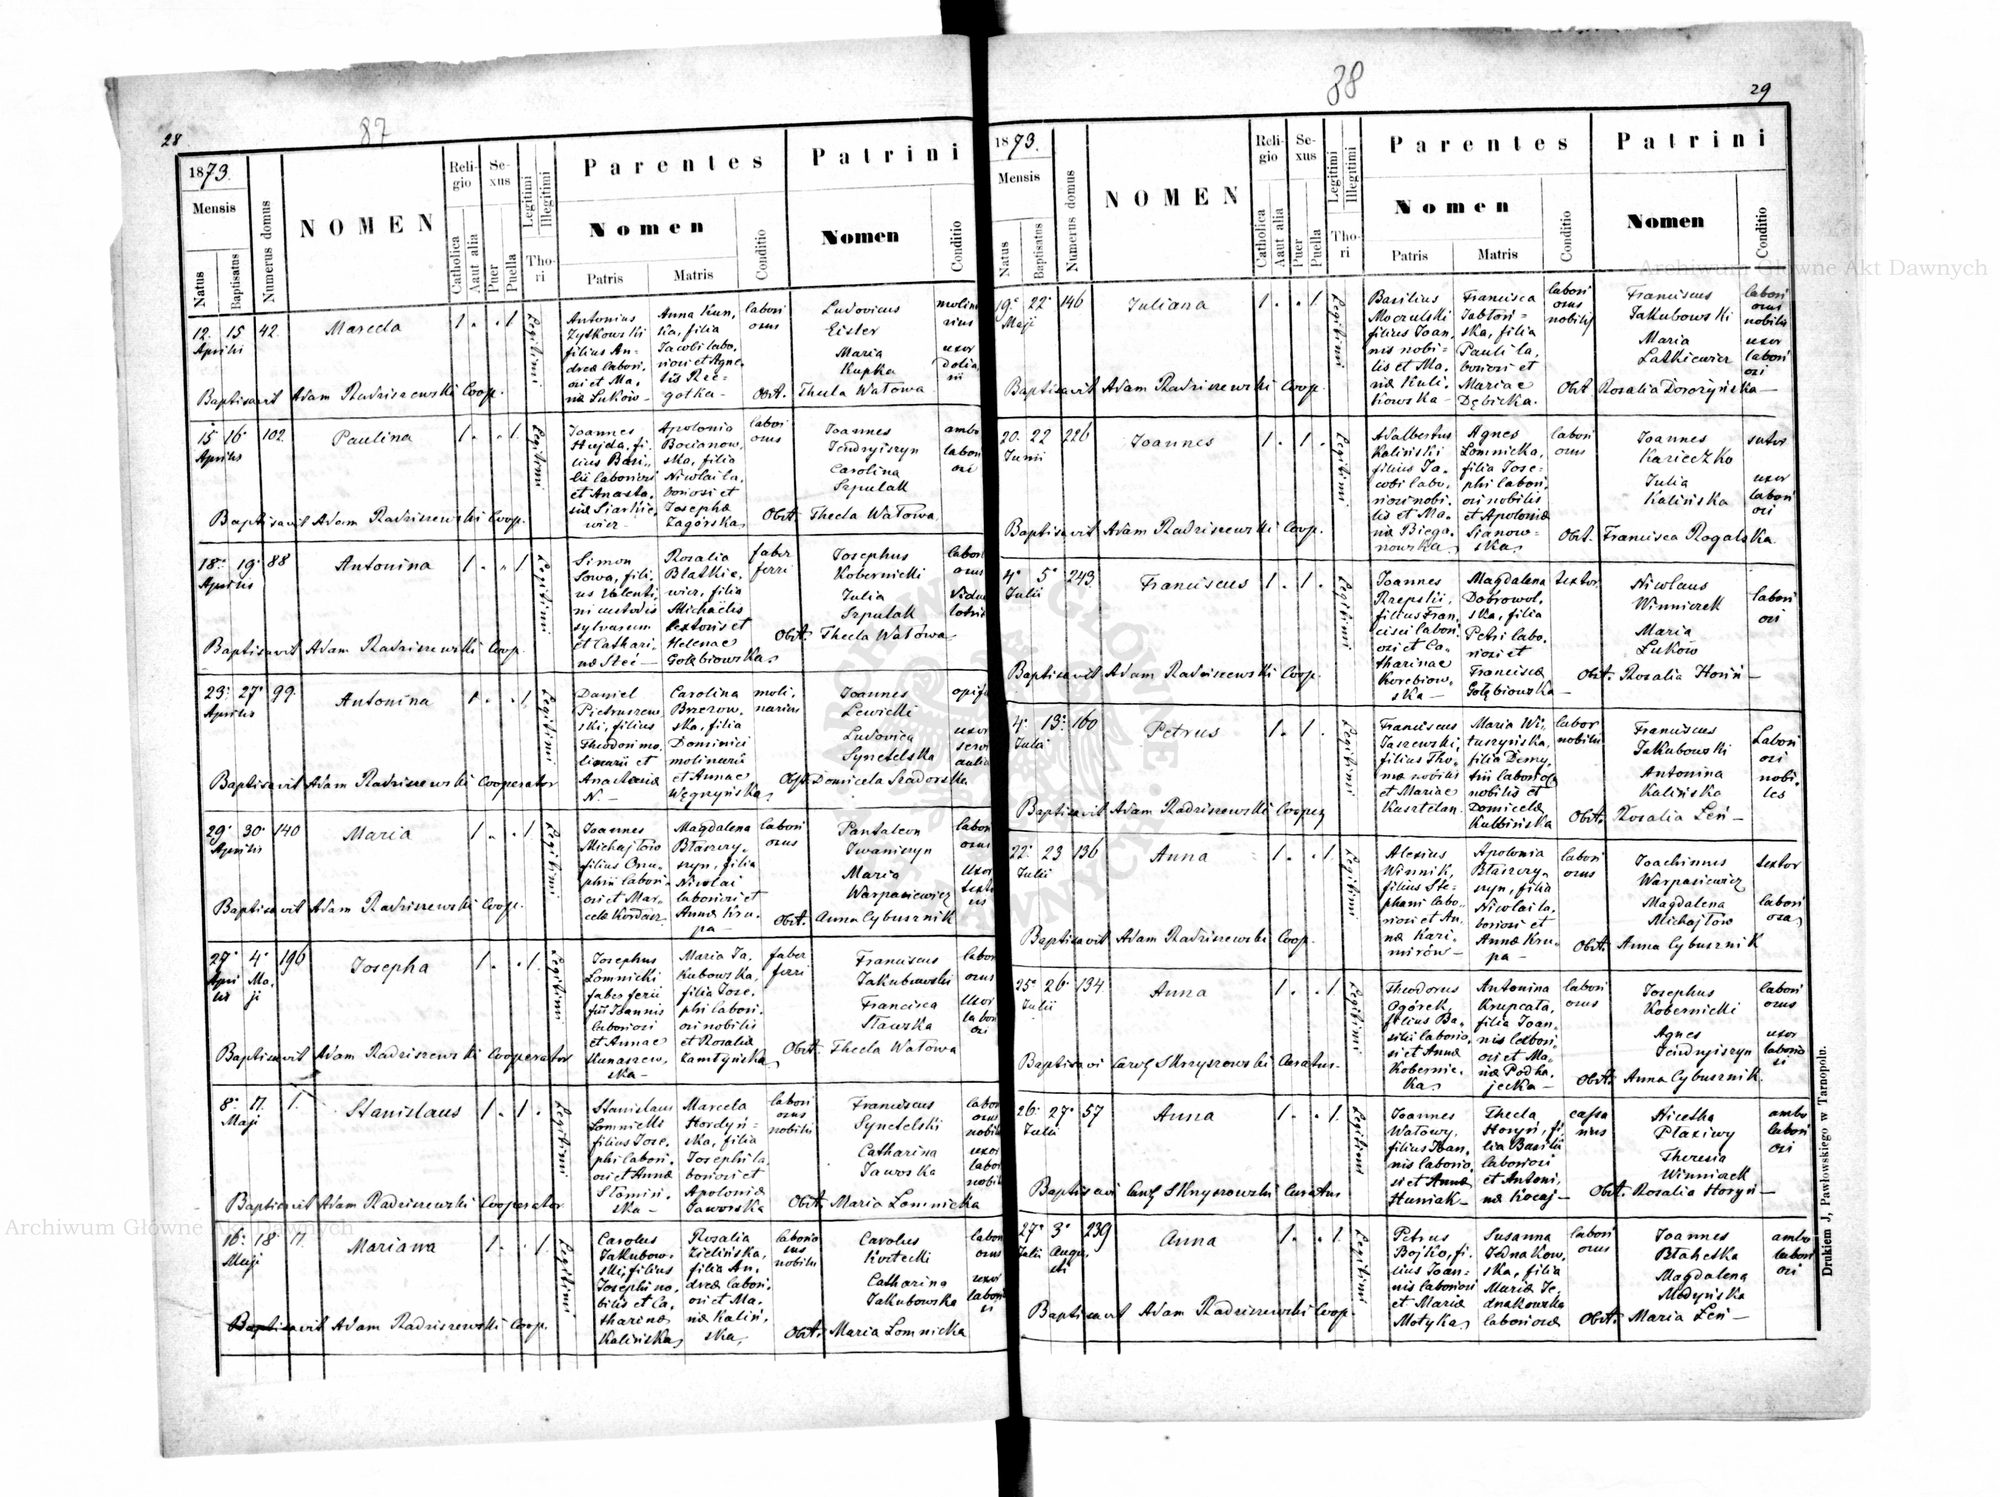 28
87
1873.
Mensis
Natus
Baptisatus
Numerus domus
NOMEN
Religio
Catholica
Aaut alia
Sexus
Puer
Puella
Legitimi
Illegitimi
Thori
Parentes
Nomen
Patris
Matris
Conditio
Patrini
Nomen
Conditio
12. 15 42. Marcela 1 . . 1 Legitimi
Aprilis
Antonius
Zytkowski
filius An-
dreæ labori-
osi et Ma-
riæ Lukow-
Anna Kun,
ka, filia
Jacobi labo,
riosi et Agne-
tis Rze-
gotka-
labori
osus
Ludovicus
Eister
Maria
Kupka
molina
rius
uxor
dolia,
rii
Baptisavit Adam Radziszewski Coop. Obst. Thecla Watowa
15 16 102 Paulina 1 . . 1. Legitimi
Aprilis
Joannes
Hujda, fi,
lius Basi-
lii laboriosi
et Anasta,
siæ Siarkie,
wicz-
Apolonia
Bocianow,
ska, filia
Nicolai la,
boriosi et
Josephæ
Zagórska
labori
osus
Joannes
Jendryiszyn
Carolina
Szpulak
ambo
labori
osi
Baptisavit Adam Radziszewski Coop. Obst. Thecla Watowa
18. 19. 88 Antonina 1 . . 1 Legitimi
Aprilis
Simon
Sowa, fili-
us Valenti,
ni custodis
sylvarum
et Cathari-
næ Stec-
Rosalia
Blatkie,
wicz, filia
Michaelis
textoris et
Helenae
Gołębiowska
faber
ferri
Josephus
Kobernicki
Julia
Szpulak
labori
osus
Baptisavit Adam Radziszewski Coop. Obst. Thecla Watowa
23. 27. 99. Antonina 1 . . 1 Legitimi
Aprilis
Daniel
Pietruszew,
ski, filius
Theodori mo,
linarii et
Anastasiæ
N.-
Carolina
Brzezow,
ska, filia
Dominici
molinarii
et Annae
Węgrzyńska
moli,
narius
Joannes
Lewicki
Ludovica
Synetelska
uxor
Baptisavit Adam Radziszewski Cooperator Obst. Domicela Sadorska
29. 30. 140 Maria 1 . . 1 Legitimi
Aprilis
Joannes
Michajłow
filius Onu-
phrii labori-
osi et Mar-
celæ Kordasz-
Magdalena
Błaszczy-
szyn, filia
Nicolai
laboriosi et
Annæ Kru-
pa-
labori
osus
Pantaleon
Iwaniszyn
Maria
Warpasiewicz
labori
osus
uxor
Baptisavit Adam Radziszewski Coop. Obst. Anna Cybusznik
27. 4. 196 Josepha 1 . . 1. Legitimi
Apri Ma-
lis ji
Josephus
Lomnicki
faber ferri
fil Joannis
laboriosi
et Annae
Kunaszew,
ska-
Maria Ja,
kubowska,
filia Jose,
phi labori,
osi nobilis
et Rosaliæ
Zamłyńska
faber
ferri
Franciscus
Jakubowski
Francisca
Sławska
labori
osus
uxor
labori
osi
Baptisavit Adam Radziszewski Cooperator Obst. Thecla Watowa
8. 11. 1. Stanislaus 1 . 1 . Legitimi
Maji
Stanislaus
Lomnicki
filius Jose,
phi labori,
osi et Annæ
Słomin,
ska-
Marcela
Hordyń-
ska, filia
Josephi la,
boriosi et
Apoloniæ
Jaworska
labori
osus
nobilis
Franciscus
Synetelski
Catharina
Jaworska
labori
osus
nobilis
uxor
labori
nobilis
Baptisavit Adam Radziszewski Cooperator Obst. Maria Lomnicka
16. 18. 11. Marianna 1 . . 1. Legitimi
Maji
Carolus
Jakubow-
ski, filius
Josephi no,
bilis et Ca,
tharinæ
Kalińska
Rosalia
Zielińska,
filia An,
dreæ labori,
osi et Ma,
riæ Kaliń,
ska,
laborio
sus
nobilis
Carolus
Kortecki
Catharina
Jakubowska
labori
osus
uxor
laborio
si
Baptisavit Adam Radziszewski Coop. Obst. Maria Lomnicka
88
29
1873.
Mensis
Natus
Baptisatus
Numerus domus
NOMEN
Religio
Catholica
Aaut alia
Sexus
Puer
Puella
Legitimi
Illegitimi
Thori
Parentes
Nomen
Patris
Matris
Conditio
Patrini
Nomen
Conditio
19. 22. 146 Juliana 1. . 1. Legitimi
Maji
Basilius
Moczulski
filius Joan,
nis nobi-
lis et Ma-
riæ Kuli-
kowska-
Francisca
Jabłoń-
ska, filia
Pauli la,
boriosi et
Mariae
Dębicka.
labori
osus
nobilis
Franciscus
Jakubowski
Maria
Latkiewicz
labori
osus
nobilis
uxor
labori
osi
Baptisavit Adam Radziszewski Coop. Obst. Rosalia Dorożyńska-
20. 22 226 Joannes 1. 1. Legitimi
Junii
Adalbertus
Kaliński
filius Ja-
cobi labo,
riosi nobi,
lis et Ma-
riæ Biega,
nowska
Agnes
Lomnicka,
filia Jose-
phi labori,
osi nobilis
et Apoloniæ
Sianow-
ska
labori
osus
Joannes
Kariczko
Julia
Kalińska
sutor
uxor
labori
osi
Baptisavit Adam Radziszewski Coop. Obst. Francisca Rogalska
4. 5. 243. Franciscus 1. 1. Legitimi
Julii
Joannes
Rzepski,
filius Fran,
cisci labori,
osi et Ca-
tharinae
Korebiow,
ska-
Magdalena
Dobrowol,
ska, filia
Petri labo,
riosi et
Franciscæ
Gołębiowska-
textor
Nicolaus
Winniczek
Maria
Łukow
labori
osi
Baptisavit Adam Radziszewski Coop. Obst. Rosalia Horiń-
4. 13. 160 Petrus 1. 1. Legitimi
Julii
Franciscus
Jaszewski,
filius Tho,
mæ nobilis
et Mariae
Kasztelan.
Maria Wi,
tuszyńska,
filia Demy,
trii laboriosi
nobilis et
Domicelæ
Kulbińska
labor
nobilis
Franciscus
Jakubowski
Antonina
Kalińska
labori
osi
nobi-
les
Baptisavit Adam Radziszewski Cooper Obst. Rosalia Łeń-
22. 23 136 Anna 1. . 1. Legitimi
Julii
Alexius
Winnik,
filius Ste-
phani labo-
riosi et An,
næ Kazi-
mirów-
Apolonia
Błaszczy-
szyn, filia
Nicolai la,
boriosi et
Annæ Kru-
pa-
labori
osus
Joachimus
Warpasiewicz
Magdalena
Michajłow
textor
labori
osa
Baptisavit Adam Radziszewski Coop. Obst. Anna Cybusznik
25. 26. 134. Anna 1. . 1. Legitimi
Julii
Theodorus
Ogórek,
filius Ba-
silii laborio,
si et Annæ
Kobernic-
ka
Antonina
Krupcata,
filia Joan-
nis labori-
osi et Ma-
riæ Podha,
jecka-
labori
osus
Josephus
Kobernicki
Agnes
Jendryiszyn
labori
osus
uxor
laborio
si
Baptisavi Carol Skrzyszowski Curatus- Obst. Anna Cybusznik.
26. 27. 57 Anna 1. . 1. Legitimi
Julii
Joannes
Watowy,
filius Joan-
nis laborio,
si et Annæ
Huniak-
Thecla
Horyń, fi
lia Basilii
laboriosi
et Antoni,
næ Kocaj-
Nicetka
Ptaxiwy
Theresia
Winniczek
ambo
labori
osi
Baptisavi Carol Skrzyszowski Curatus Obst. Rosalia Horyń-
27. 3. 239 Anna 1. . 1. Legitimi
Julii Augu,
sti
Petrus
Bojko, fi,
lius Joan-
nis laboriosi
et Mariæ
Motyka
Susanna
Jednakow,
ska, filia
Mariæ Je,
dnakowska
laboriosæ
labori
osus
Joannes
Blahetka
Magdalena
Modyńska
ambo
labori
osi
Baptisavit Adam Radziszewski Coop. Obst. Maria Łeń-
Drukiem J. Pawłowskiego w Tarnopolu.
Archiwum Główne Akt Dawnych
Archiwum Główne Akt Dawnych
ARCHIWUM GŁÓWNE AKT DAWNYCH